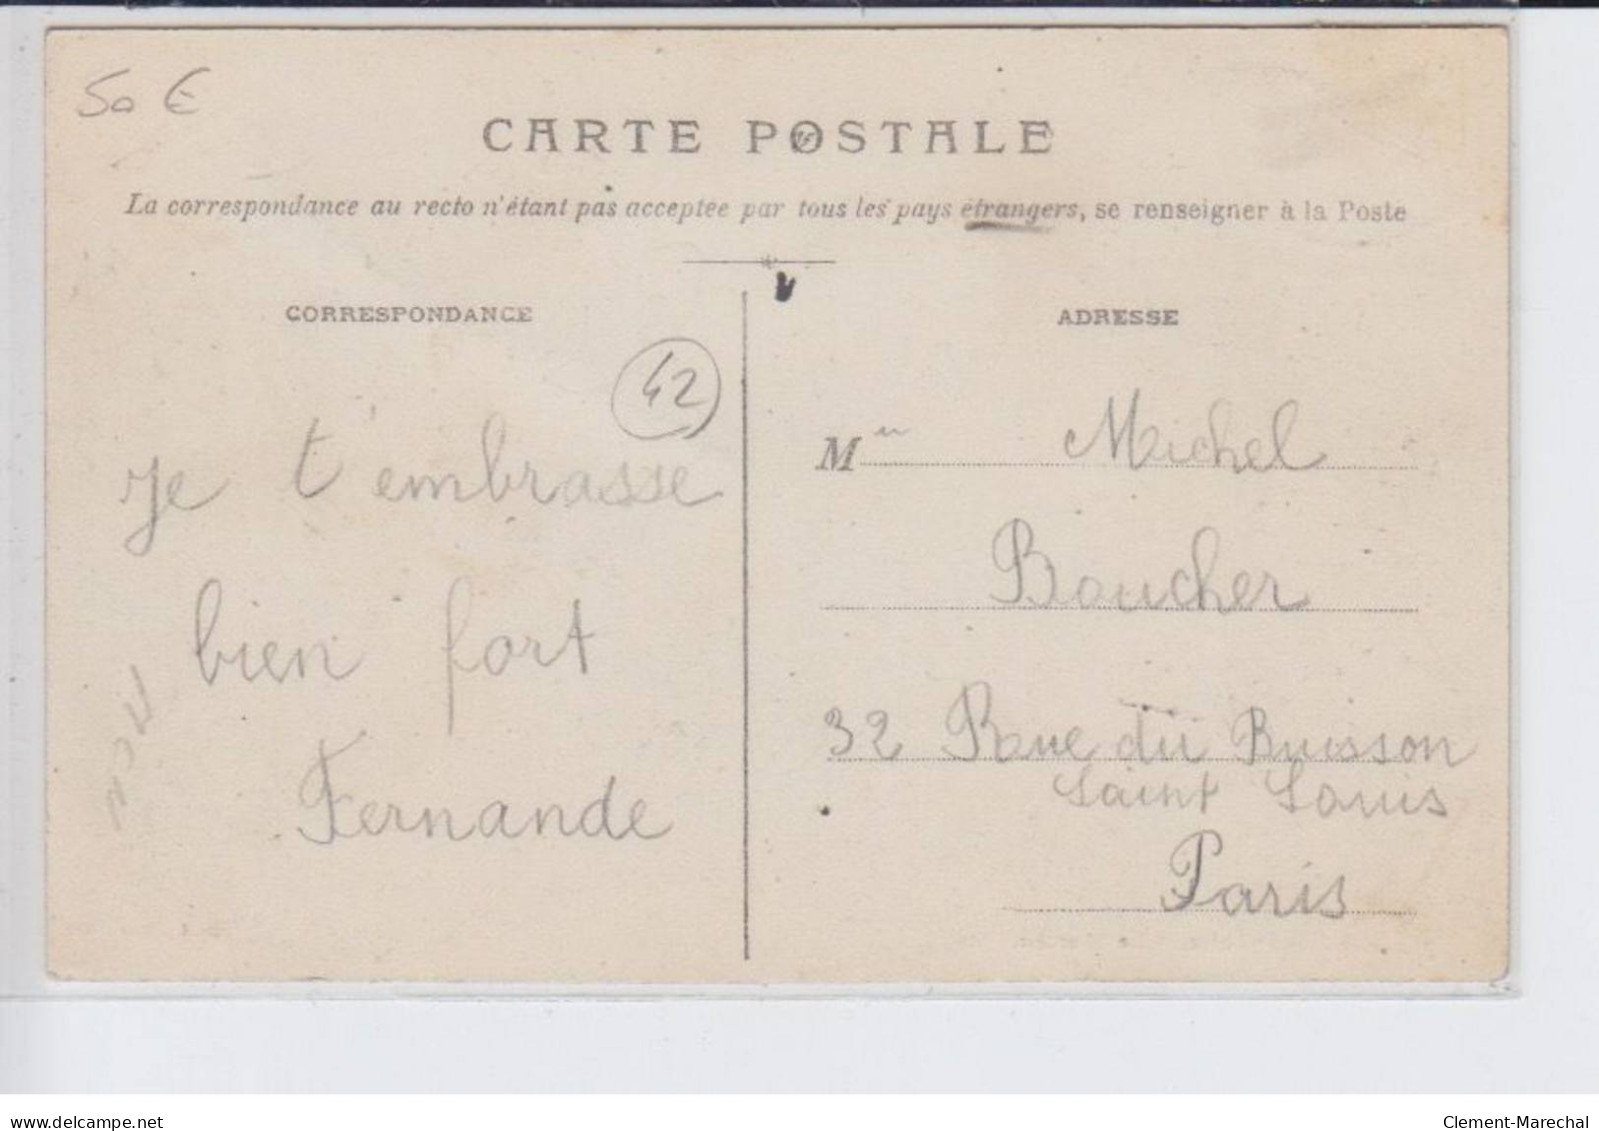 50 €
CARTE POSTALE
La correspondance au recto n'étant pas acceptée par tous les pays étrangers, se renseigner à la Poste
CORRESPONDANCE
42
Je t'embrasse
bien fort
Fernande
ADRESSE
M Michel
Boucher
32 Rue du Buisson
Saint Louis
Paris
www.delcampe.net
Clement-Marechal